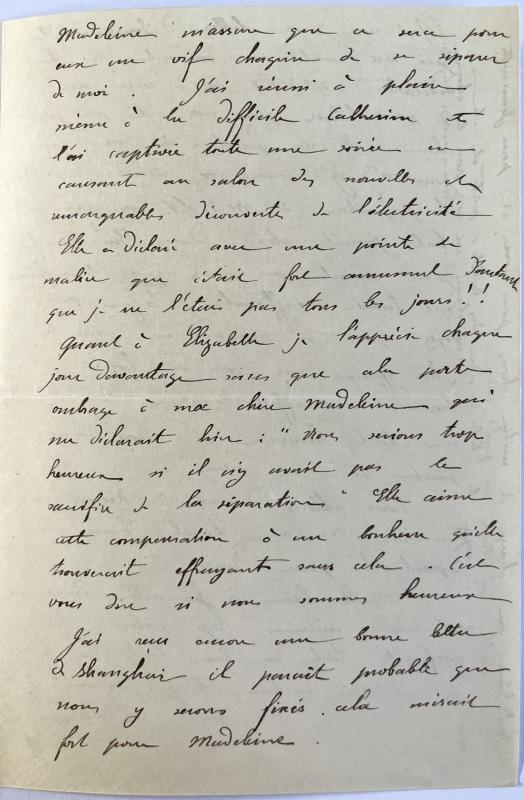 Madeleine m'assure que ce sera pour
eux un vif chagrin de se séparer
de moi. J'ai réussi à plaire
même à la difficile Catherine et
l'ai captivée toute une soirée en
causant au salon des nouvelles et
remarquables découvertes de l'électricité
Elle a déclaré avec une pointe de
malice que c'était fort amusant d'autant
que je ne l'étais pas tous les jours!!
Quant à Elizabeth je l'apprécie chaque
jour davantage sans que cela porte
ombrage à ma chère Madeleine qui
me déclarait hier : "nous serions trop
heureux si il n'y avait pas le
sacrifice de la séparation" Elle aime
cette compensation à un bonheur qu'elle
trouverait effrayant sans cela. C'est
vous dire si nous sommes heureux
J'ai reçu encore une bonne lettre
de Shanghaï il paraît probable que
nous y serons fixés. cela
fort pour Madeleine.